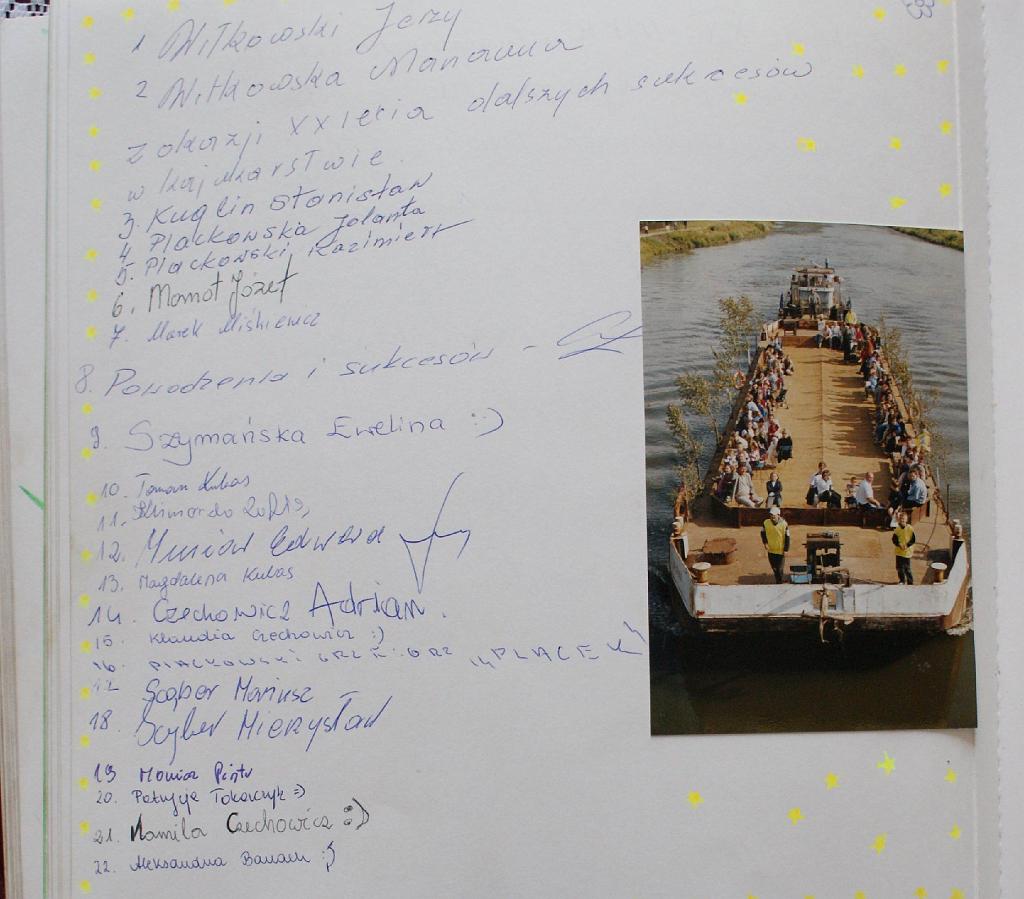 83
1 Witkowski Jerzy
2 Witkowska Marianna
z okazji XX lecia dalszych sukcesów
w kajakarstwie.
3. Kuglin Stanisław
4. Plackowska Jolanta
5. Plackowski Kazimierz
6. Mamot Józef
7. Marek Miśkiewicz
8. Powodzenia i sukcesów -
9. Szymańska Ewelina :)
10. Tomasz Kubas
11.
12. Edward
13. Magdalena Kubas
14. Czechowicz Adrian.
15. Klaudia Czechowicz :)
16. PLACKOWSKI GRZEGORZ "PLACEK"
17 Mariusz
18. Mieczysław
19 Piotr
20. Patrycja Tokarczyk =)
21. Kamila Czechowicz :)
22. Aleksandra Banach :)